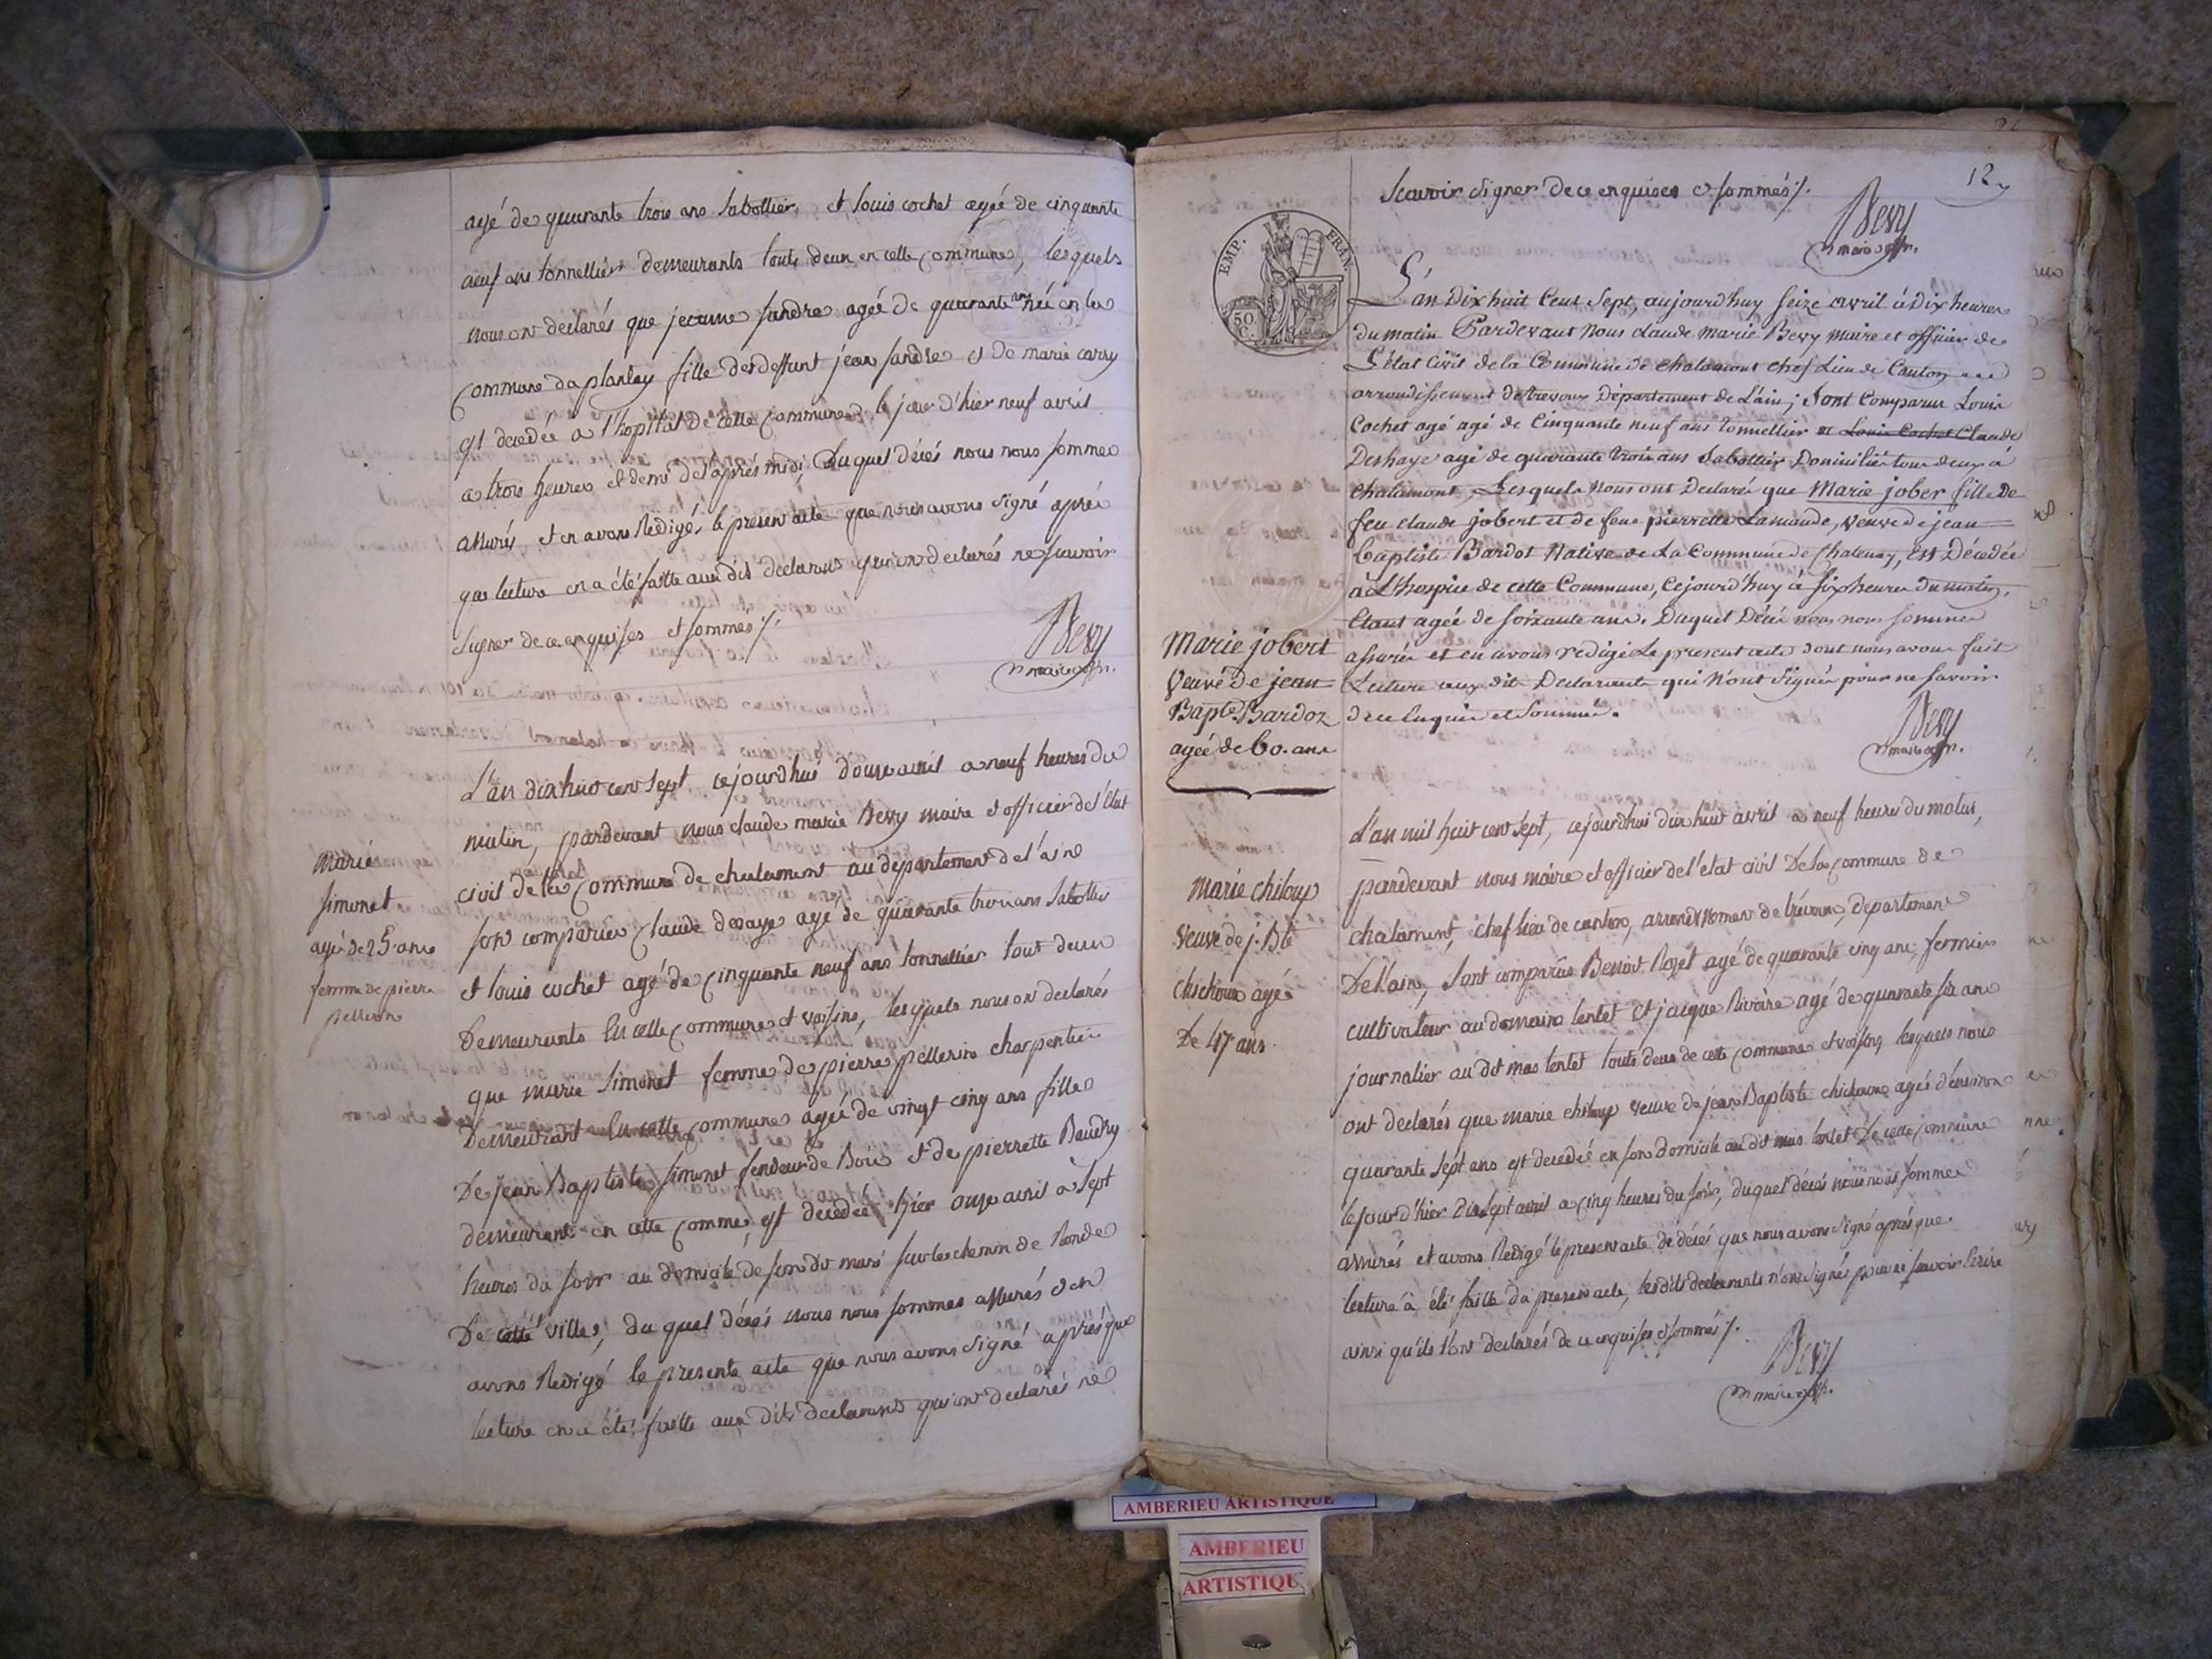 agé de quarante trois ans Sabottier, et louis cochet agéé de cinquante
neuf ans tonnellier demeurants touts deux en cette commune, lesquels
nous ont declarés que jeanne fandre agéé de quarante ans néé en la
commune du plantay fille de deffunt jean fandre et de marie carry
est decedée a l'hopital de cette commune le jour d'hier neuf avril
a trois heures et demi de l'après midi, Duquel décés nous nous sommes
assurés et en avons Redigés le present acte que nous avons signé après
que lecture en a été faitte aux dits declarants qui ont declarés ne scavoir
signer de ce enquises et sommés /.
Bevy
maire off.
marie
simonet
agé de 25 ans
femme de pierre
pellerin
L'an dix huit cent sept cejourdhui douze avril a neuf heures du
matin, pardevant nous claude marie Bevy maire et officier de l'état
civil de la commune de chalamont au departement de l'ain
sont comparus claude dezaye agé de quarante trois ans Sabottier
et louis cochet agé de cinquante neuf ans tonnellier tout deux
demeurants En cette commune et voisins, lesquels nous ont declarés
que marie simonet femme de pierre pellerin charpentier
Demeurant En cette commune agéé de vingt cinq ans fille
De jean Baptiste simonet fendeur de Bois et de pierrette Baudry
demeurant en cette comme, est decedéé hier onze avril à sept
heures du soir au domicile de son dit mari sur le chemin de Ronde
De cette ville, du quel décés nous nous sommes assurés et en
avons Redigé le presente acte que nous avons signé après que
lecture en a été faitte aux dits declarants qui ont declarés ne
12
Scavoir signer de ce enquises et sommés /.
Bevy
maire off.
EMP. FRAN.
50 C.
L'an Dix huit Cent Sept, aujourd'huy seize avril à Dix heures
du matin Pardevant Nous claude marie Bevy maire et officier de
L'état Civil de la Commune de Chalamont chef Lieu de Canton
arrondissement de trevoux Département de L'ain; Sont Comparus Louis
Cochet agé agé de Cinquante neuf ans tonnellier et Louis Cochet Claude
Deshaye agé de quarante trois ans Sabottier Domiciliés tous deux à
Chalamont, Lesquels Nous ont Declarés que Marie jober fille De
feu claude jobert et de feue pierrette Lamaude, veuve de jean
baptiste Bardot Native de La Commune de Chatenay, Est Décedée
à L'hospice de cette Commune, Cejourd'huy à six heures du matin,
Etant agée de soixante ans. Duquel Décés nous nous sommes
assurés et en avons redigé Le present acte dont nous avons fait
Lecture aux dit Declarants qui N'ont signés pour ne savoir
de ce Enquis et Sommés.
Bevy
maire off.
Marie jobert
Veuve de jean
Bapte. Bardoz
agéé de 60. ans
L'an mil huit cent sept, cejourdhui dix huit avril a neuf heures du matin,
pardevant nous maire et officier de l'état civil De la commune de
chalamont, chef lieu de canton, arrondissement de trévoux, departement
De l'ain, sont comparus Benoit Rojet agé de quarante cinq ans fermier
cultivateur au domaine lentet et jacque Riviere agé de quarante six ans
journalier au dit mas lentet touts deux de cette commune et voisins, lesquels nous
ont declarés que marie chiloup veuve de jean Baptiste chichoux agéé d'environ
quarante sept ans est decedéé en son domicile au dit mas lentet De cette commune
le jour d'hier dix sept avril a cinq heures du soir, duquel décés nous nous sommes
assurés et avons Redigé le present acte de décés que nous avons signé après que
lecture à été faitte du present acte, les dits declarants n'ont signés pour ne scavoir Ecrire
ainsi qu'ils l'ont declarés de ce enquises et sommés /.
Bevy
maire off.
marie chiloup
veuve de j. Bte
chichoux agéé
De 47 ans
AMBERIEU ARTISTIQUE
AMBERIEU
ARTISTIQU